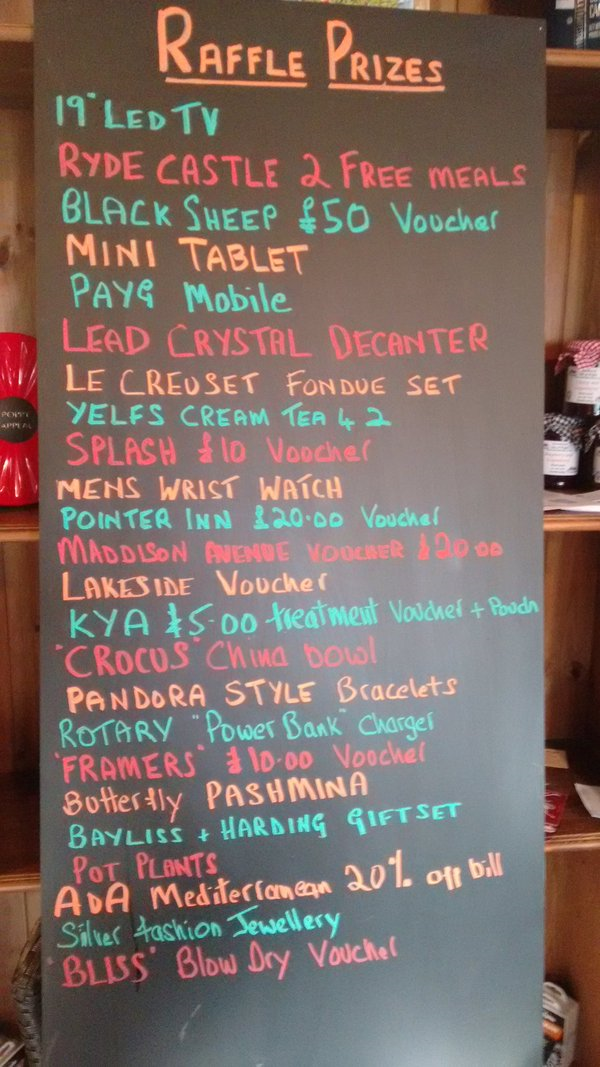 RAFFLE PRIZES
19" LED TV
RYDE CASTLE 2 FREE MEALS
BLACK SHEEP £50 Voucher
MINI TABLET
PAYG Mobile
LEAD CRYSTAL DECANTER
LE CREUSET FONDUE SET
YELFS CREAM TEA 4 2
SPLASH £10 Voucher
MENS WRIST WATCH
POINTER INN £20.00 Voucher
MADDISON AVENUE VOUCHER £20.00
LAKESIDE Voucher
KYA £5.00 treatment Voucher + Pouch
"CROCUS" China bowl
PANDORA STYLE Bracelets
ROTARY "Power Bank" Charger
"FRAMERS" £10.00 Voucher
Butterfly PASHMINA
BAYLISS + HARDING GIFTSET
POT PLANTS
ADA Mediterranean 20% off bill
Silver fashion Jewellery
"BLISS" Blow Dry Voucher
POPPY
APPEAL